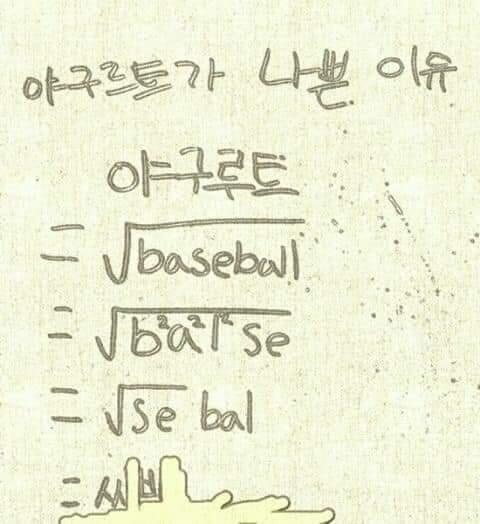 야구르트가 나쁜 이유
야구루트
= √baseball
= √b²a²l²se
= √se bal
=